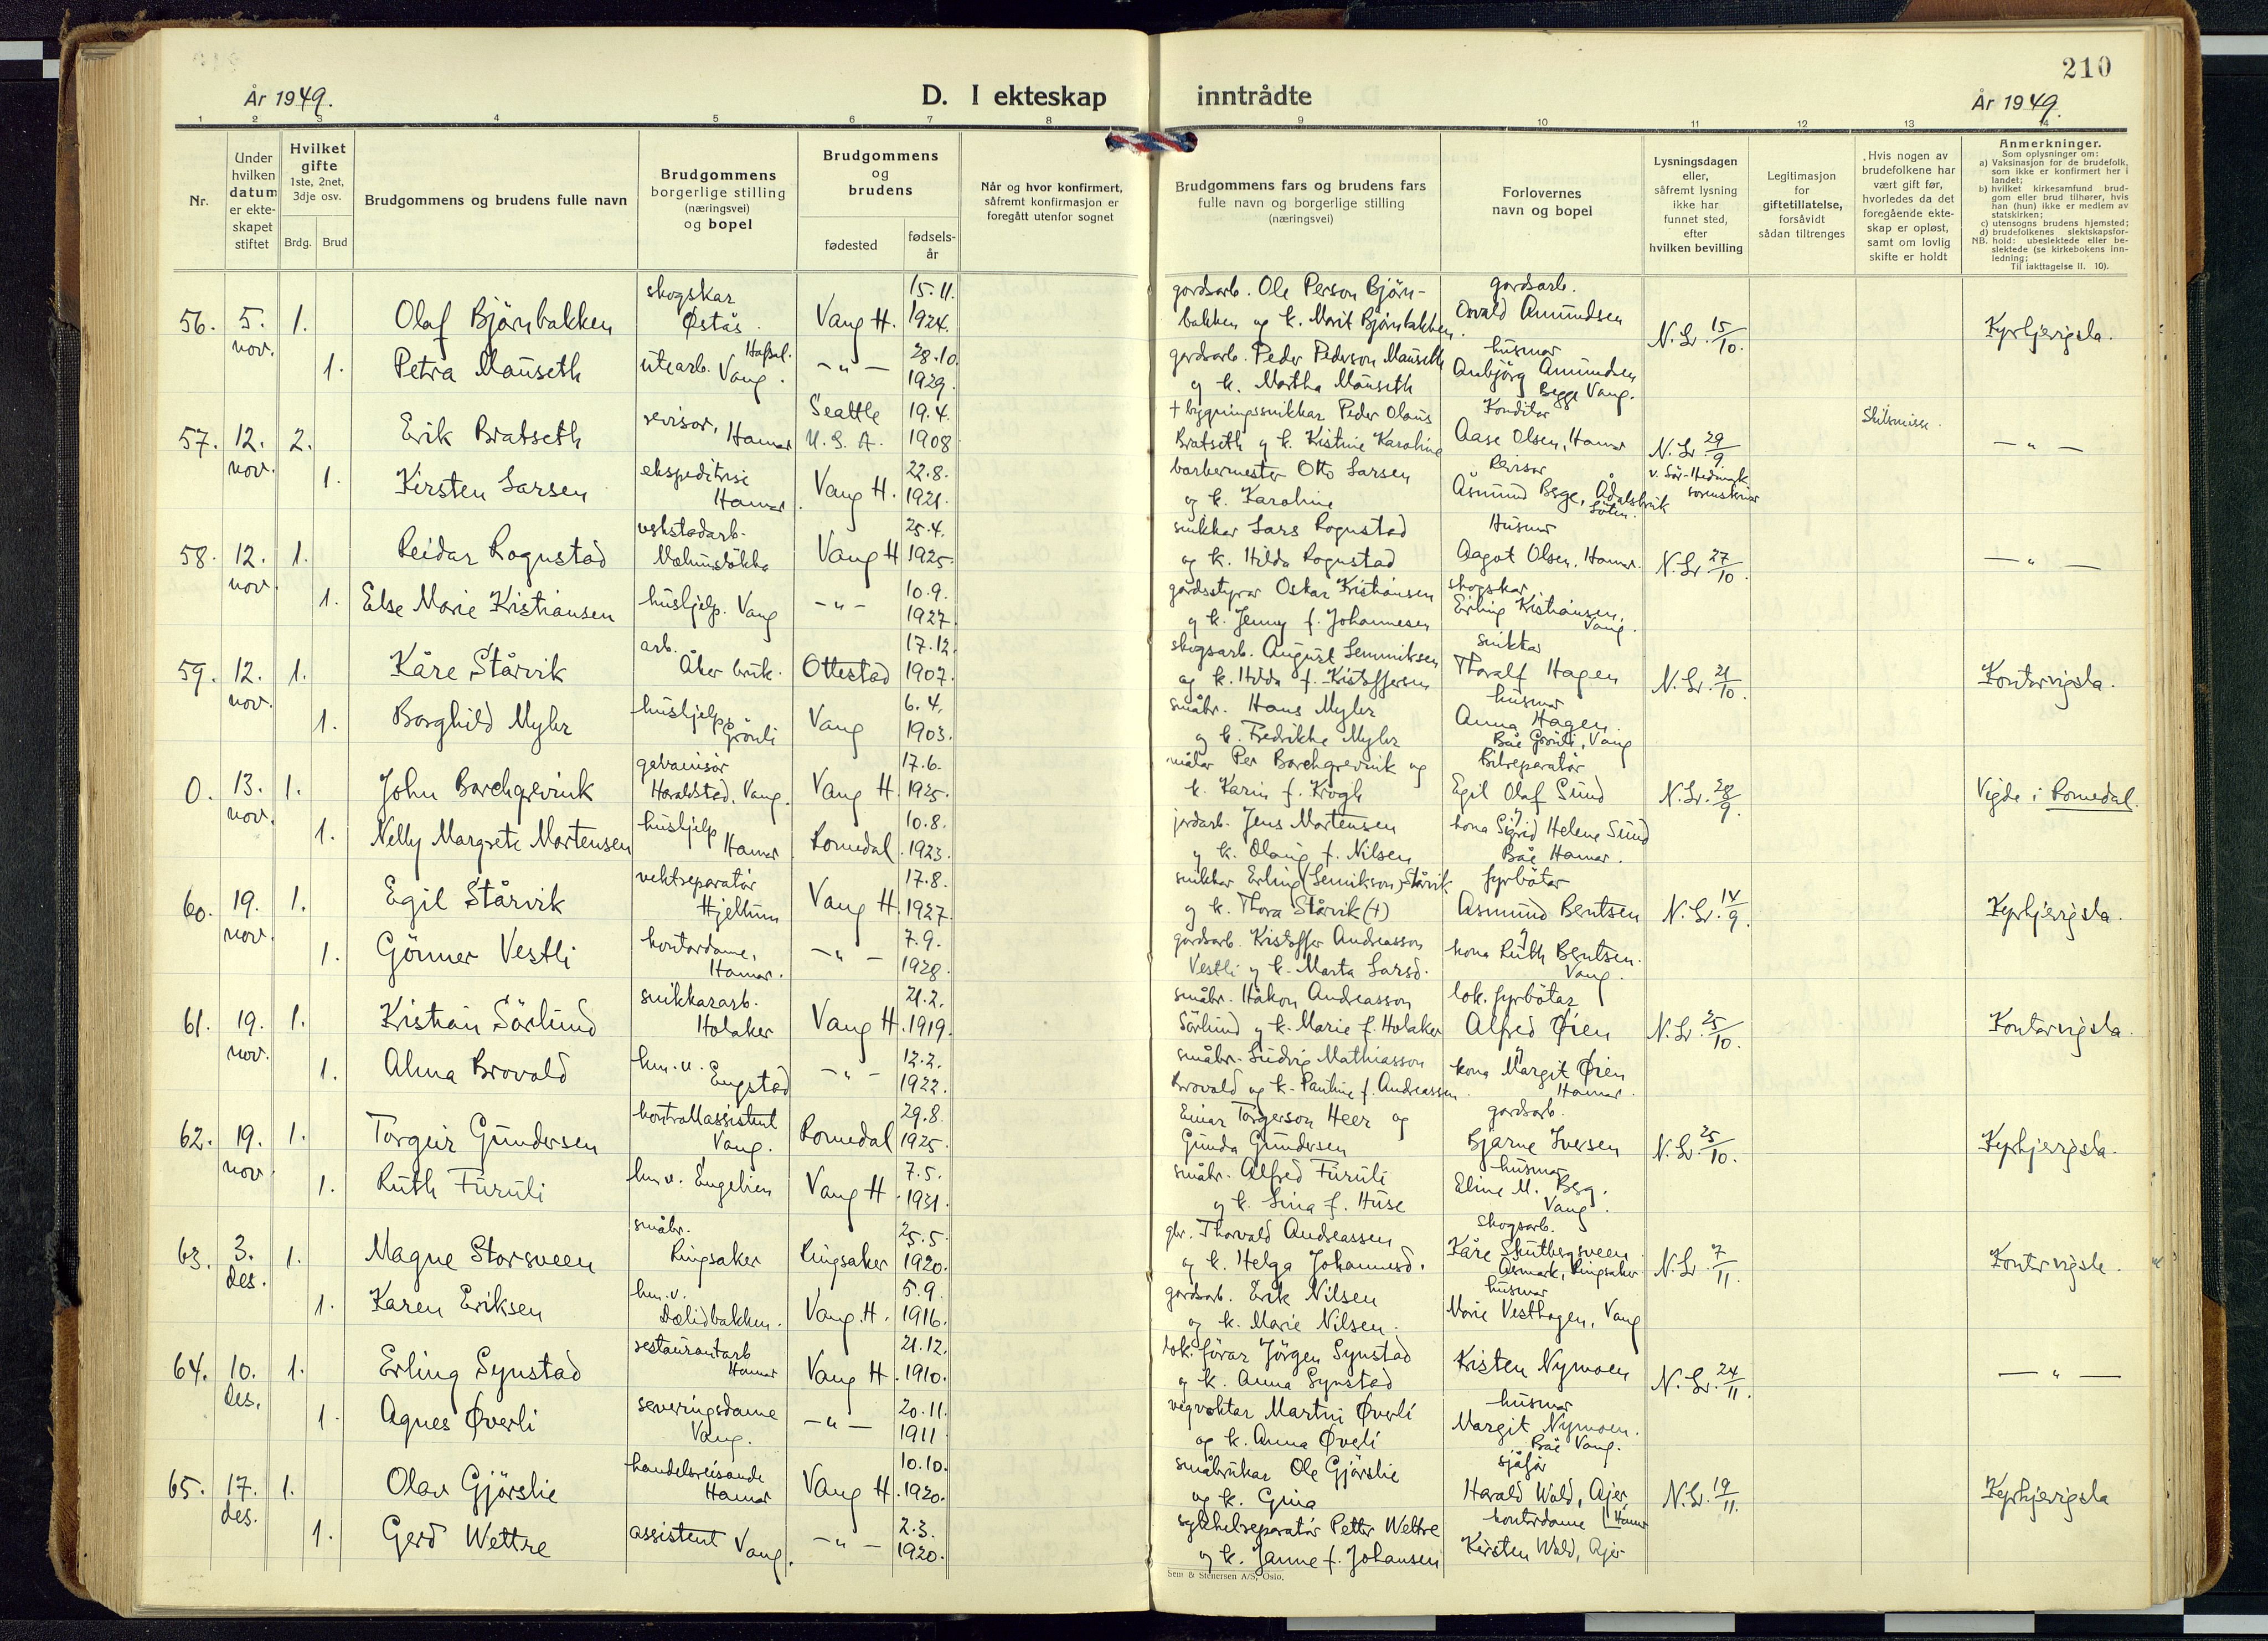 210
År 1949.
D. I ekteskap
inntrådte
År 1949.
1 2 3 4 5 6 7 8
9 10 11 12 13 14
Nr.
Under hvilken datum er ekteskapet stiftet
Hvilket gifte
1ste, 2net, 3dje osv.
Brdg. Brud
Brudgommens og brudens fulle navn
Brudgommens borgerlige stilling (næringsvei) og bopel
Brudgommens og brudens
fødested
fødsels-år
Når og hvor konfirmert, såfremt konfirmasjon er foregått utenfor sognet
Brudgommens fars og brudens fars fulle navn og borgerlige stilling (næringsvei)
Forlovernes navn og bopel
Lysningsdagen eller, såfremt lysning ikke har funnet sted, efter hvilken bevilling
Legitimasjon for giftetillatelse, forsåvidt sådan tiltrenges
Hvis nogen av brudefolkene har vært gift før, hvorledes da det foregående ekteskap er opløst, samt om lovlig skifte er holdt
Anmerkninger.
Som oplysninger om:
a) Vaksinasjon for de brudefolk, som ikke er konfirmert her i landet;
b) hvilket kirkesamfund brudgom eller brud tilhører, hvis han (hun) ikke er medlem av statskirken;
c) utensogns brudens hjemsted;
d) brudefolkenes slektskapsforhold: ubeslektede eller beslektede (se kirkebokens innledning;
NB.
Til iakttagelse II. 10).
56. 5. nov. 1. Olaf Bjørnbakken skogskar Østås. Vang H. 15.11. 1924.
gardsarb. Ole Person Bjørnbakken og k. Marit Bjørnbakken. gardsarb. Osvald Amundsen N.Lr. 15/10. Kyrkjevigsla.
1. Petra Mauseth utearb. Vang. -"- 28.10. 1929.
gardsarb. Peder Pederson Mauseth og k. Martha Mauseth husmor Anbjørg Amundsen Begge Vang.
57. 12. nov. 2. Erik Bratseth revisor, Hamar Seattle U.S.A. 19.4. 1908
+ bygningssnikkar Peder Olaus Bratseth og k. Kistine Karoline Konditor Aase Olsen, Hamar N.Lr. 29/9 v. Sør-Hedmark sorenskriver Skilsmisse. -"-
1. Kirsten Larsen ekspeditrise Hamar. Vang H. 22.8. 1921.
barbermester Otto Larsen og k. Karoline Revisor Åsmund Berge, Ådalsbruk Løten.
58. 12. nov. 1. Reidar Rognstad Vang H 25.4. 1925.
snikkar Lars Rognstad og k. Hilda Rognstad Husmor Aagot Olsen, Hamar. N.Lr. 27/10. -"-
1. Else Marie Kristiansen hushjelp. Vang -"- 10.9. 1927.
gårdsstyrar Oskar Kristiansen og k. Jenny f. Johannesen skogskar Erling Kristiansen, Vang.
59. 12. nov. 1. Kåre Stårvik arb. Åker bruk. Ottestad 17.12. 1907.
skogsarb. August Lemmiksen og k. Hilda f. Kistoffersen snikkar Thoralf Hagen N.Lr. 21/10. Kontorvigsla.
1. Borghild Myhr hushjelp, Grønli Vang 6.4. 1903.
småbr. Hans Myhr og k. Fredrikke Myhr husmor Anna Hagen. Båe Grønli, Vang
0. 13. nov. 1. John Borchgrevink galvanisør Haraldstad, Vang. Vang H. 17.6. 1925.
målar Per Borchgrevink og k. Karin f. Krogh Bilreparatør Egil Olaf Sund N.Lr. 28/9. Vigde i Romedal.
1. Nelly Margrete Mortensen hushjelp Hamar. Romedal. 10.8. 1923.
jordarb. Jens Mortensen og k. Olaug f. Nilsen og kona Sigrid Helene Sund Båe Hamar.
60. 19. nov. 1. Egil Stårvik vektreparatør Hjellum Vang H. 17.8. 1927.
snikkar Erling (Lemikson) Stårvik og k. Thora Stårvik (+) fyrbøtar Asmund Bentsen N.Lr. 14/9. Kyrkjevigsla.
1. Gönner Vestli kontordame, Hamar. -"- 7.9. 1928.
gardsarb. Kristoffer Andreasson Vestli og k. Marta Larsd. og kona Ruth Bentsen. Vang.
61. 19. nov. 1. Kristian Sørlund snikkararb. Holaker Vang H. 21.2. 1919.
småbr. Håkon Andreasson Sørlund og k. Marie f. Holaker lok. fyrbøtar Alfred Øien N.Lr. 25/10. Kontorvigsla.
1. Alma Brovold hm.v. Engstad -"- 12.2. 1922.
småbr. Ludvig Mathiasson Brovold og k. Pauline f. Andreassen. og kona Margit Øien Hamar.
62. 19. nov. 1. Torgeir Gundersen kontrollassistent Vang. Romedal 29.8. 1925.
Einar Torgerson Heer og Gunda Gundersen gardsarb. Bjarne Iversen N.Lr. 25/10. Kyrkjevigsla.
1. Ruth Furuli hm v. Engelien Vang H. 7.5. 1931.
småbr. Alfred Furuli og k. Lina f. Huse husmor Eline M. Berg. Vang.
63. 3. des. 1. Magne Storsveen småbr. Ringsaker Ringsaker 25.5. 1920.
gbr. Thorvald Andreassen og k. Helga Johannesd. skogsarb. Kåre Skutbergsveen Åsmark, Ringsaker. N.Lr. 7/11. Kontorvigsle.
1. Karen Eriksen hm.v. Dælidbakken. Vang H. 5.9. 1916.
gardsarb. Erik Nilsen og k. Marie Nilsen. husmor Marie Vesthagen, Vang
64. 10. des. 1. Erling Synstad restaurantarb Hamar Vang H. 21.12. 1910.
lok. førar Jørgen Synstad og k. Anna Synstad Kristen Nymoen N.Lr. 24/11. -"-
1. Agnes Øverli serveringsdame Vang. -"- 20.11. 1911
vegvoktar Martin Øverli og k. Anna Øverli husmor Margit Nymoen. Båe Vang.
65. 17. des. 1. Olav Gjørslie handelsreisande Hamar Vang H. 10.10. 1920.
småbrukar Ole Gjørslie og k. Gina sjåfør Harald Wold, Ajer, Hamar N.Lr. 19/11. Kyrkjevigsla
1. Gerd Wettre assistent Vang. -"- 2.3. 1920.
sykkelreparatør Petter Wettre og k. Janne f. Johansen kontordame Kirsten Wold, Ajer
Sem & Stenersen A/S, Oslo.